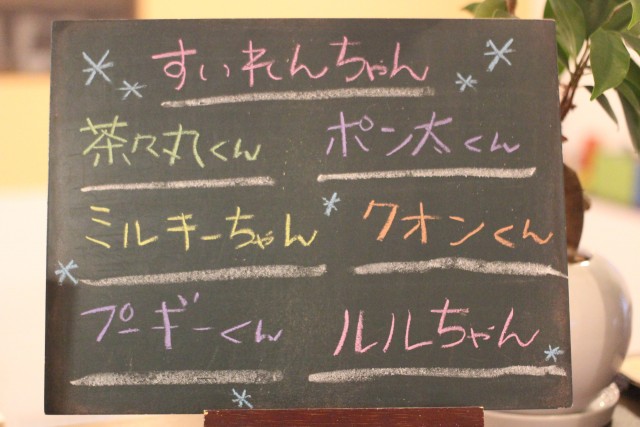 すいれんちゃん
茶々丸くん
ポン太くん
ミルキーちゃん
クオンくん
プーギーくん
ルルちゃん